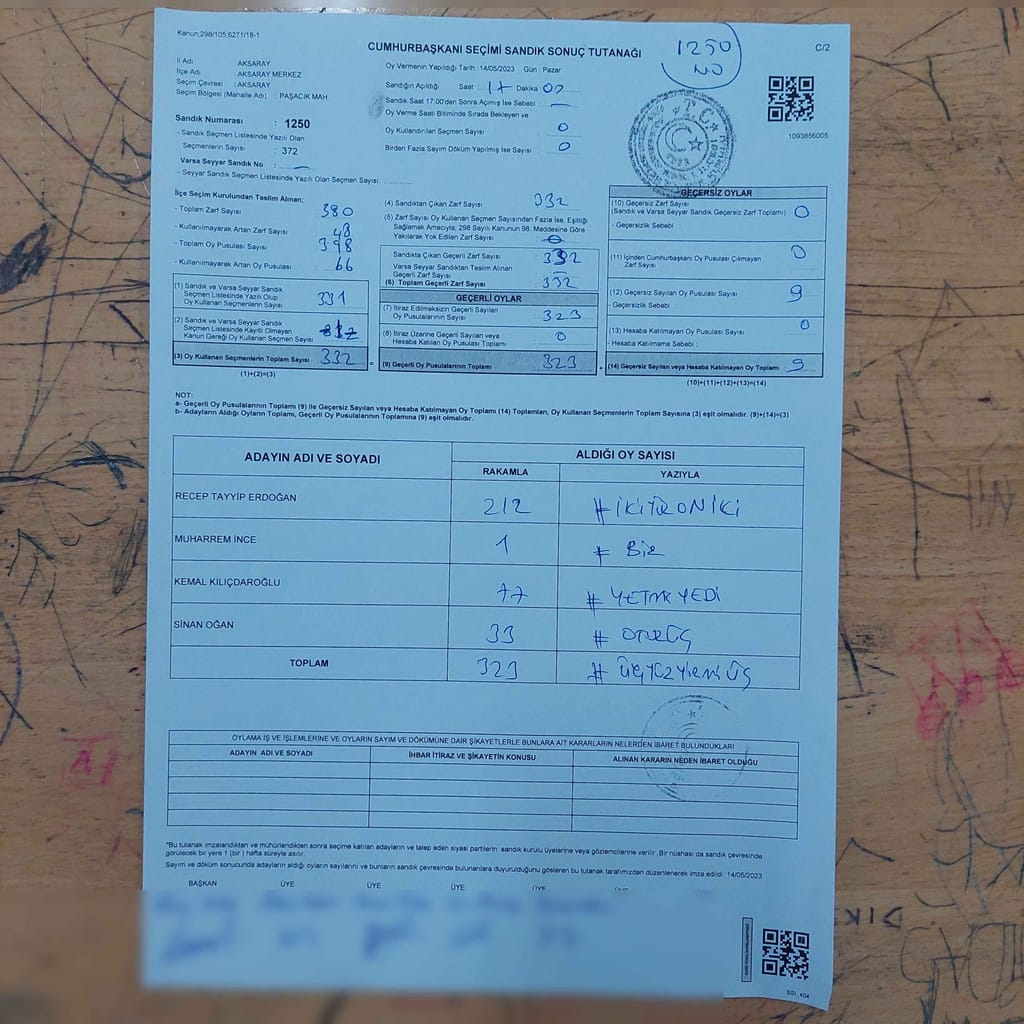 Kanun,298/105,6271/18-1
CUMHURBAŞKANI SEÇİMİ SANDIK SONUÇ TUTANAĞI
1250
NO
C/2
İl Adı : AKSARAY
İlçe Adı : AKSARAY MERKEZ
Seçim Çevresi : AKSARAY
Seçim Bölgesi (Mahalle Adı) : PAŞACIK MAH
Sandık Numarası : 1250
- Sandık Seçmen Listesinde Yazılı Olan
Seçmenlerin Sayısı : 372
Varsa Seyyar Sandık No :
- Seyyar Sandık Seçmen Listesinde Yazılı Olan Seçmen Sayısı:
Oy Vermenin Yapıldığı Tarih : 14/05/2023 Gün : Pazar
Sandığın Açıldığı Saat : 17 Dakika : 00
Sandık Saat 17:00'den Sonra Açımış İse Sebebi : —
Oy Verme Saati Bitiminde Sırada Bekleyen ve
Oy Kullandırılan Seçmen Sayısı : 0
Birden Fazla Sayım Döküm Yapılmış İse Sayısı : 0
T.C.
1093856005
İlçe Seçim Kurulundan Teslim Alınan;
- Toplam Zarf Sayısı : 380
- Kullanılmayarak Artan Zarf Sayısı : 48
- Toplam Oy Pusulası Sayısı : 398
- Kullanılmayarak Artan Oy Pusulası : 66
(1) Sandık ve Varsa Seyyar Sandık
Seçmen Listesinde Yazılı Olup
Oy Kullanan Seçmenlerin Sayısı 331
(2) Sandık ve Varsa Seyyar Sandık
Seçmen Listesinde Kayıtlı Olmayan
Kanun Gereği Oy Kullanan Seçmen Sayısı
(3) Oy Kullanan Seçmenlerin Toplam Sayısı 332
(1)+(2)=(3)
(4) Sandıktan Çıkan Zarf Sayısı : 332
(5) Zarf Sayısı Oy Kullanan Seçmen Sayısından Fazla İse, Eşitliği
Sağlamak Amacıyla; 298 Sayılı Kanunun 98. Maddesine Göre
Yakılarak Yok Edilen Zarf Sayısı : 0
Sandıkta Çıkan Geçerli Zarf Sayısı : 332
Varsa Seyyar Sandıktan Teslim Alınan
Geçerli Zarf Sayısı : —
(6) Toplam Geçerli Zarf Sayısı : 332
GEÇERLİ OYLAR
(7) İtiraz Edilmeksizin Geçerli Sayılan
Oy Pusulalarının Sayısı : 323
(8) İtiraz Üzerine Geçerli Sayılan veya
Hesaba Katılan Oy Pusulası Toplamı : 0
(9) Geçerli Oy Pusulalarının Toplamı : 323
GEÇERSİZ OYLAR
(10) Geçersiz Zarf Sayısı
(Sandık ve Varsa Seyyar Sandık Geçersiz Zarf Toplamı) : 0
- Geçersizlik Sebebi :
(11) İçinden Cumhurbaşkanı Oy Pusulası Çıkmayan
Zarf Sayısı : 0
(12) Geçersiz Sayılan Oy Pusulası Sayısı : 9
- Geçersizlik Sebebi :
(13) Hesaba Katılmayan Oy Pusulası Sayısı : 0
- Hesaba Katılmama Sebebi :
(14) Geçersiz Sayılan veya Hesaba Katılmayan Oy Toplamı : 9
(10)+(11)+(12)+(13)=(14)
NOT:
a- Geçerli Oy Pusulalarının Toplamı (9) ile Geçersiz Sayılan veya Hesaba Katılmayan Oy Toplamı (14) Toplamları, Oy Kullanan Seçmenlerin Toplam Sayısına (3) eşit olmalıdır. (9)+(14)=(3)
b- Adayların Aldığı Oyların Toplamı, Geçerli Oy Pusulalarının Toplamına (9) eşit olmalıdır.
ADAYIN ADI VE SOYADI
ALDIĞI OY SAYISI
RAKAMLA YAZIYLA
RECEP TAYYİP ERDOĞAN 212 # İKİYÜZONİKİ
MUHARREM İNCE 1 # BİR
KEMAL KILIÇDAROĞLU 77 # YETMİŞYEDİ
SİNAN OĞAN 33 # OTUZÜÇ
TOPLAM 323 # ÜÇYÜZYİRMİÜÇ
OYLAMA İŞ VE İŞLEMLERİNE VE OYLARIN SAYIM VE DÖKÜMÜNE DAİR ŞİKAYETLERLE BUNLARA AİT KARARLARIN NELERDEN İBARET BULUNDUKLARI
ADAYIN ADI VE SOYADI İHBAR İTİRAZ VE ŞİKAYETİN KONUSU ALINAN KARARIN NEDEN İBARET OLDUĞU
*Bu tutanak imzalandıktan ve mühürlendikten sonra seçime katılan adayların ve talep eden siyasi partilerin sandık kurulu üyelerine veya gözlemcilerine verilir. Bir nüshası da sandık çevresinde
görülecek bir yere 1 (bir) hafta süreyle asılır.
Sayım ve döküm sonucunda adayların aldığı oyların sayılarını ve bunların sandık çevresinde bulunanlara duyurulduğunu gösteren bu tutanak tarafımızdan düzenlenerek imza edildi. 14/05/2023
BAŞKAN ÜYE ÜYE ÜYE ÜYE ÜYE
SSI_404
DIK